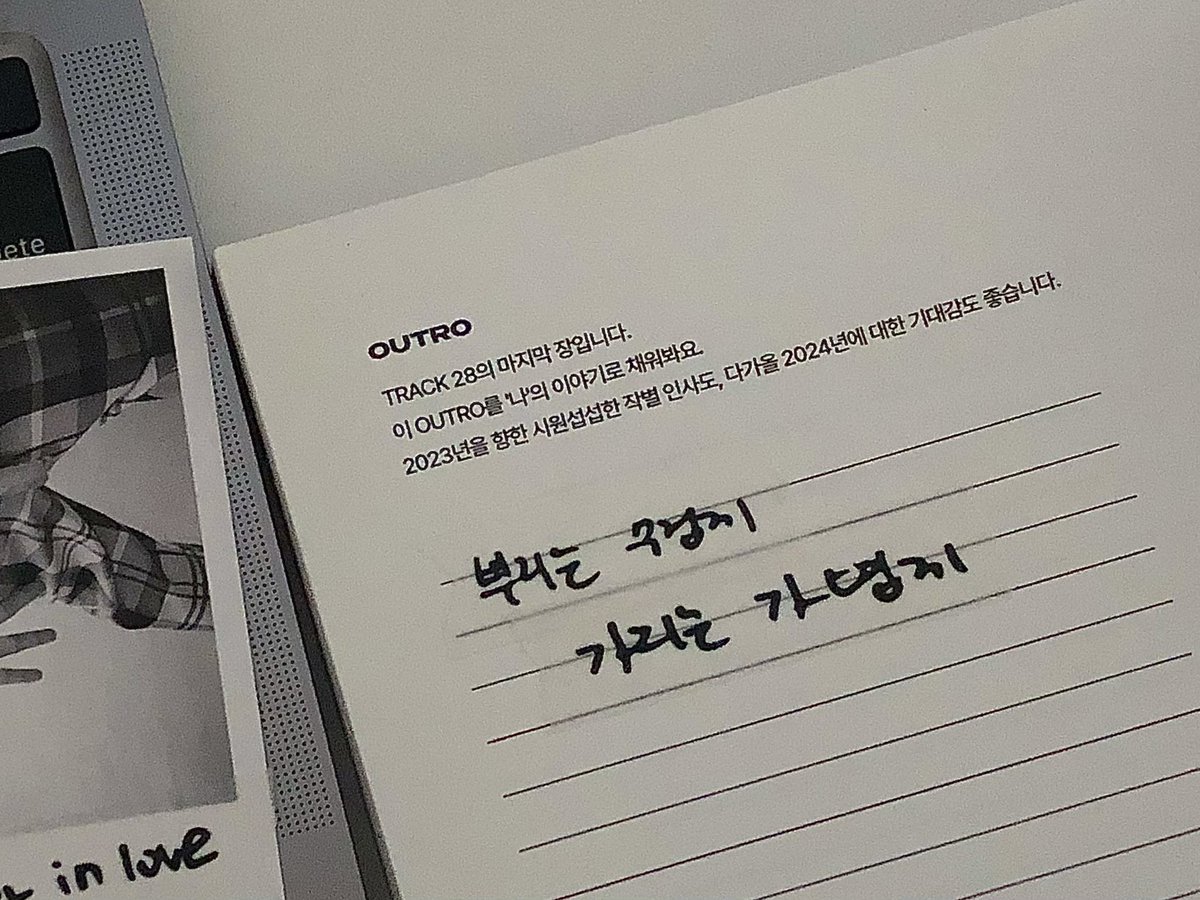 ete
OUTRO
TRACK 28의 마지막 장입니다.
이 OUTRO를 '나'의 이야기로 채워봐요.
2023년을 향한 시원섭섭한 작별 인사도, 다가올 2024년에 대한 기대감도 좋습니다.
뿌리는 무겁게
가지는 가볍게
in love